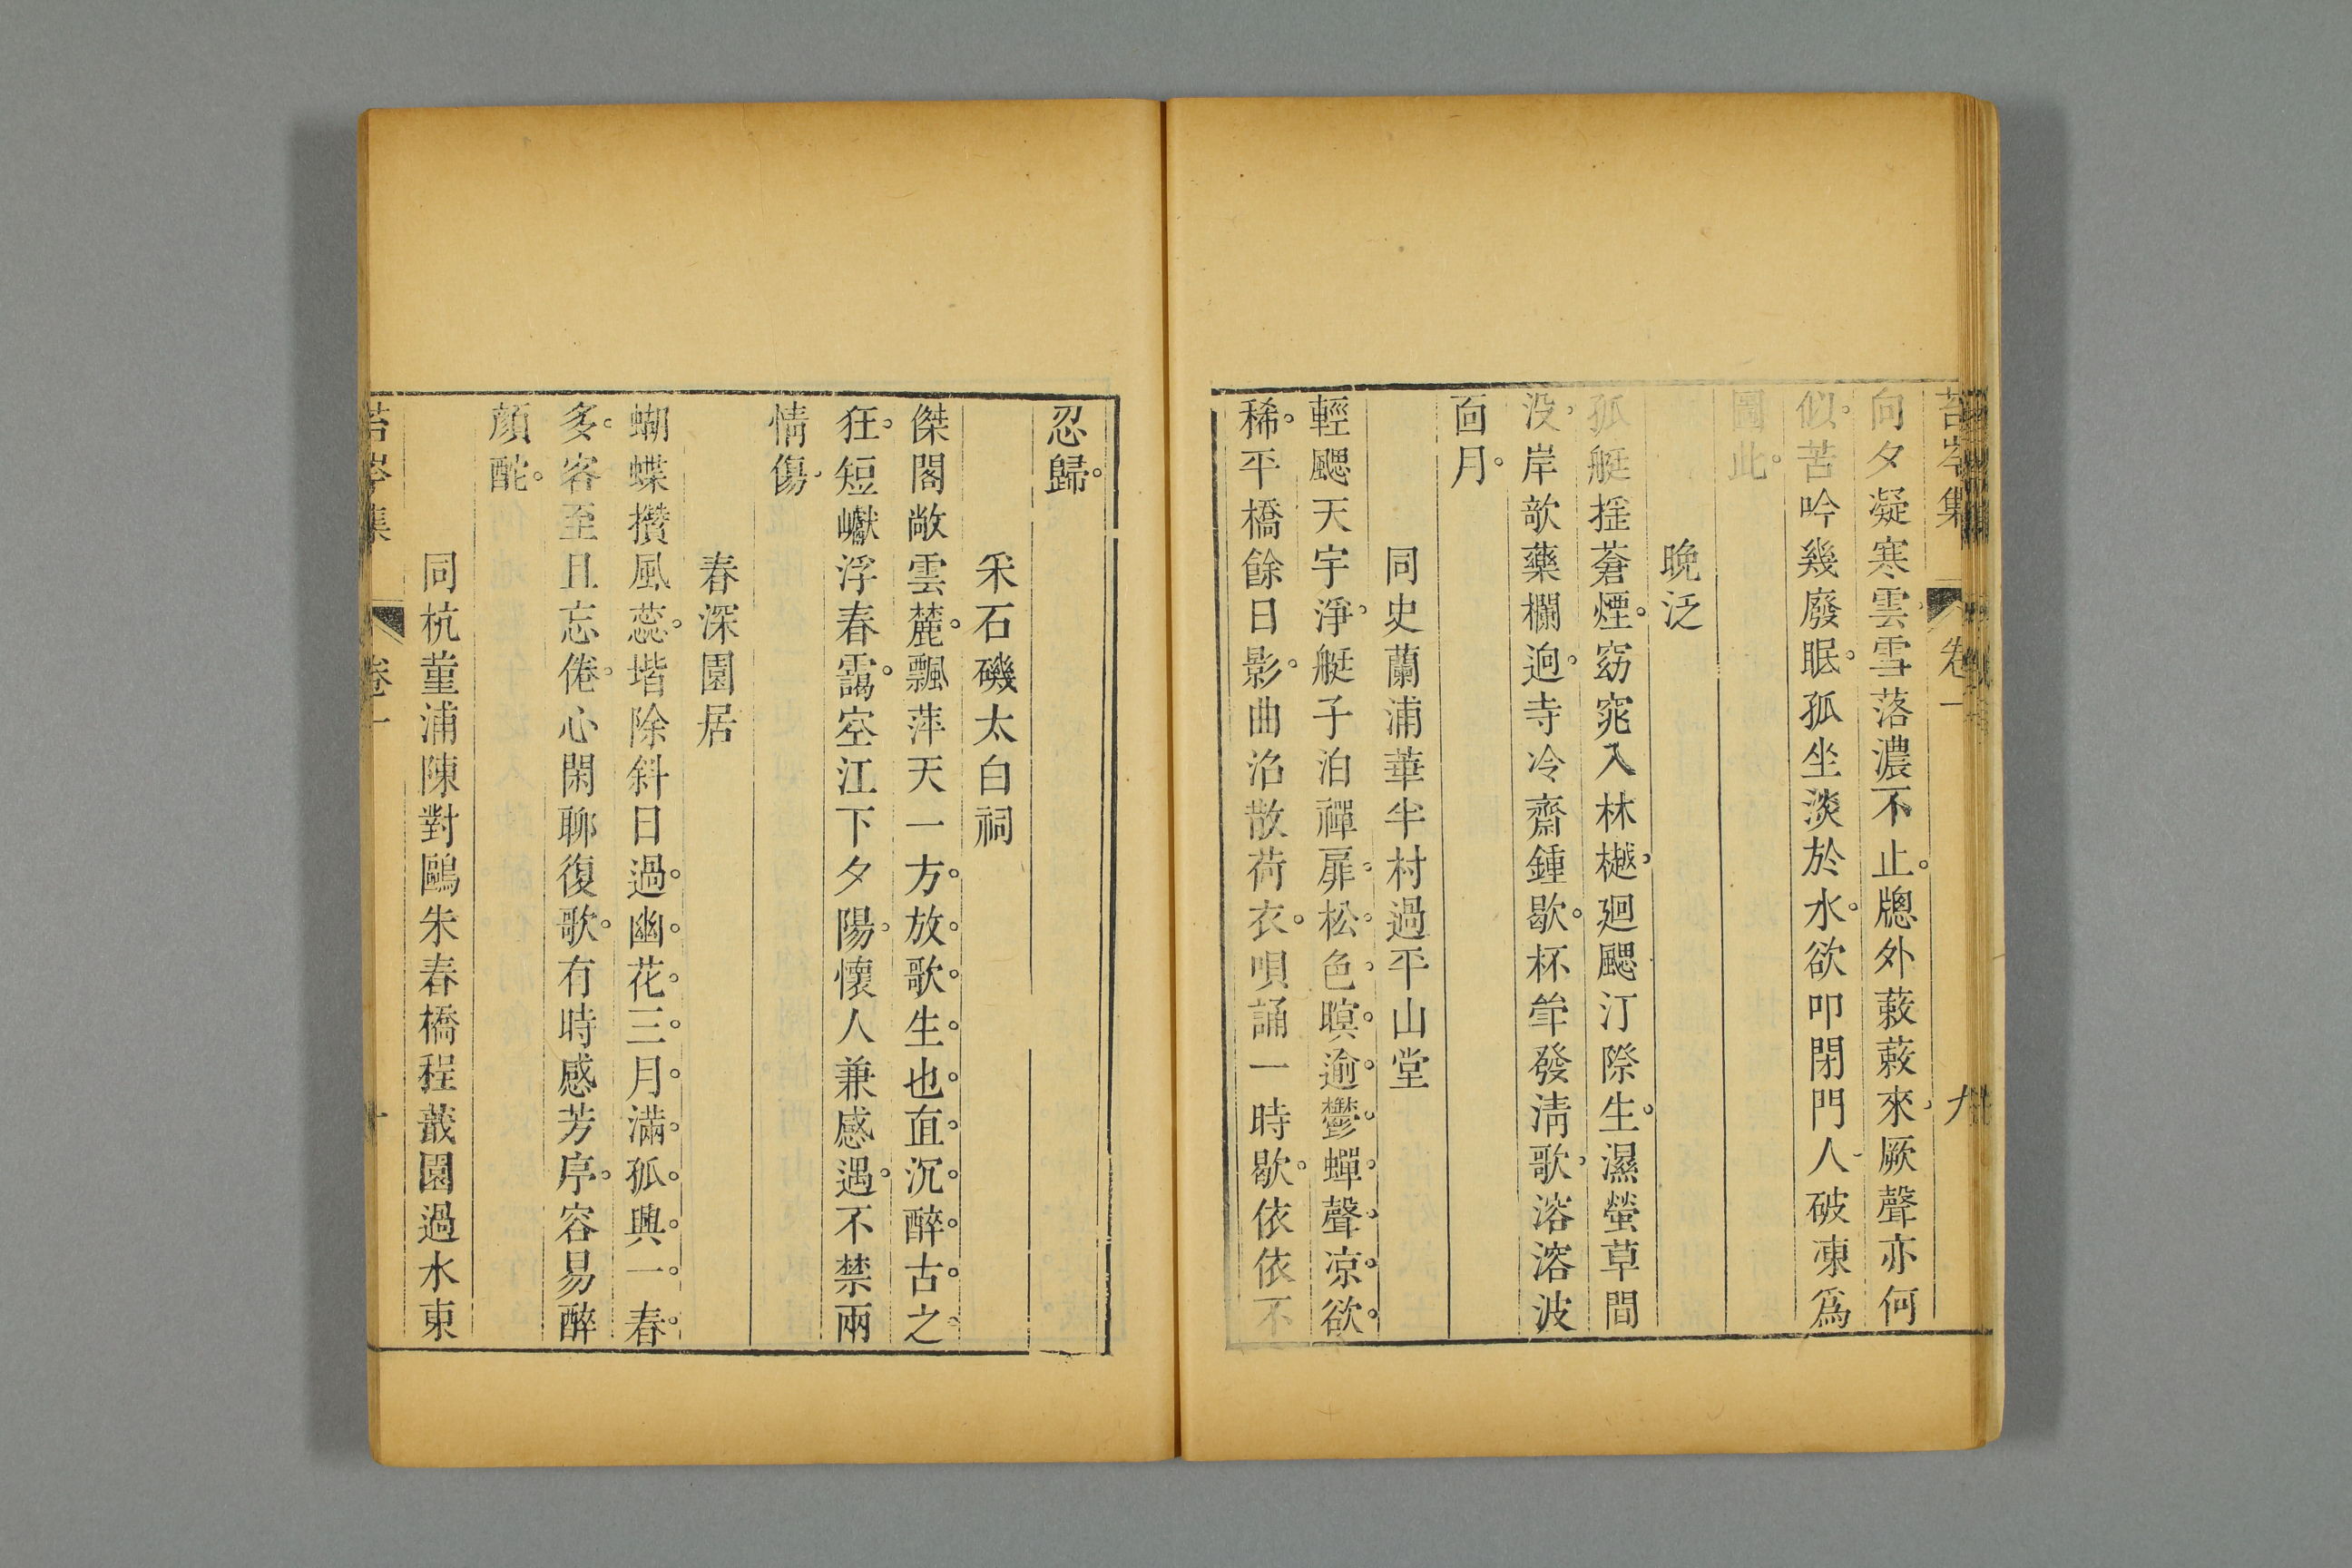 苔岑集 卷一 九
向夕凝寒雲雪落濃不止。牕外蔌蔌來厥聲亦何
似。苦吟幾廢眠。孤坐淡於水。欲叩閉門人破凍爲
圖此。
晩泛
孤艇搖蒼煙。窈窕入林樾。廻颸汀際生。濕螢草間
没。岸欹藥欄逈。寺冷齋鍾歇。杯斚發淸歌。溶溶波
面月。
同史蘭浦華半村過平山堂
輕颸天宇淨。艇子泊禪扉。松色暝逾鬱。蟬聲凉欲
稀。平橋餘日影。曲沼散荷衣。唄誦一時歇。依依不
忍歸。
采石磯太白祠
傑閣敞雲麓。飄萍天一方。放歌生也直。沉醉古之
狂。短巘浮春靄。空江下夕陽。懷人兼感遇。不禁兩
情傷。
春深園居
蝴蝶攢風蕊。堦除斜日過。幽花三月滿。孤興一春
多。客至且忘倦。心閑聊復歌。有時感芳序。容易醉
顔酡。
同杭菫浦陳對鷗朱春橋程蕺園過水東
苔岑集 卷一 十